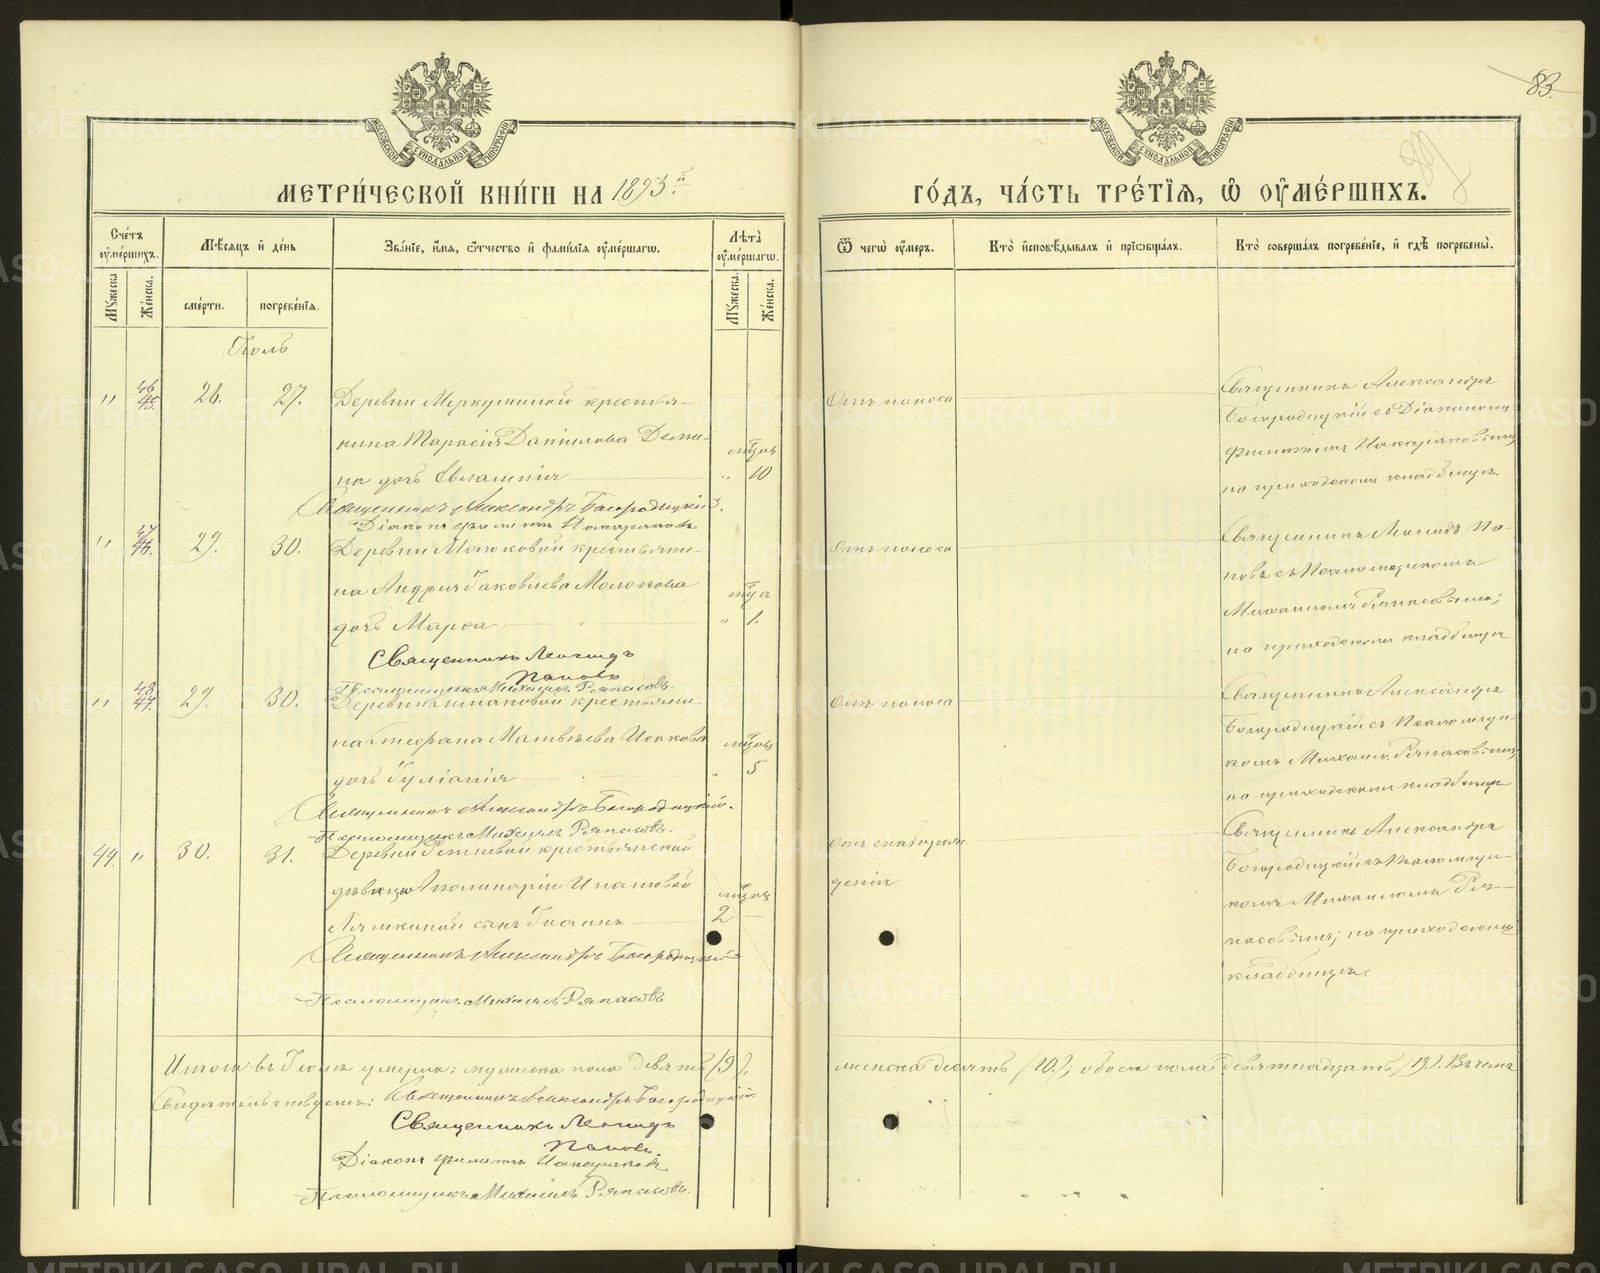 83.
89
МОСКОВСКОЙ СѴНОДАЛЬНОЙ ТИПОГРАФІИ
МОСКОВСКОЙ СѴНОДАЛЬНОЙ ТИПОГРАФІИ
МЕТРИ́ЧЕСКОЙ КНИ́ГИ НА 1893й
ГО́ДЪ, ЧА́СТЬ ТРЕ́ТЇѦ, Ѡ҆ ОУ҆МЕ́РШИХЪ.
Сче́тъ оу҆ме́ршихъ.
Мѣ́сѧцъ и҆ де́нь
Зва́нїе, и҆́мѧ, ѻ҆́тчество и҆ фами́лїѧ оу҆ме́ршагѡ.
Лѣ́та оу҆ме́ршагѡ.
Ѿ чегѡ̀ оу҆́меръ.
Кто̀ и҆сповѣ́дывалъ и҆ прїѡбща́лъ.
Кто̀ соверша́лъ погребе́нїе, и҆ гдѣ̀ погребены̀.
Мꙋ́жеска
Же́нска.
сме́рти.
погребе́нїѧ.
Мꙋ́жеска
Же́нска.
Іюль
" 46 45. 26. 27. Деревни Меркушиной крестья-
нина Тарасія Даніилова Деми-
на дочь Евлампія
мѣсяц
" 10
Отъ поноса
Священникъ Александръ
Богородицкій съ Діакономъ
Филиппомъ
на приходскомъ кладбищѣ.
Священникъ Александръ Богородицкій.
Діаконъ Филиппъ
" 47 46. 29. 30. Деревни Молоковой крестьяни-
на Андрея Іаковлева Молокова
дочь Марѳа
" 1.
Отъ поноса
Священникъ Леонидъ По-
повъ съ Псаломщикомъ
Михаиломъ Ряпасовымъ;
на приходскомъ кладбищѣ
Священникъ Леонидъ
Поповъ
Псаломщикъ Михаилъ Ряпасовъ.
" 48 47. 29. 30. Деревни крестьяни-
на Стефана Матвѣева Исакова
дочь Іуліанія
мѣсяц
" 5
Отъ поноса
Священникъ Александръ
Богородицкій съ Псаломщи-
комъ Михаил. Ряпасовымъ
на приходскомъ кладбищѣ
Священникъ Александръ Богородицкій.
Псаломщикъ Михаилъ Ряпасовъ.
44. " 30. 31. Деревни крестьянской
дѣвицы Аполинаріи Ипатовой
сынъ Іоаннъ
мѣсяц
2
Священникъ Александръ
Богородицкій съ Псаломщи-
комъ Михаиломъ Ря-
пасовымъ; на приходскомъ
кладбищѣ.
Священникъ Александръ Богородицкій
Псаломщикъ Михаилъ Ряпасовъ
Итого въ Іюлѣ умерло: мужеска пола девять (9),
женска десять (10); обоего пола девятнадцать (19). Въ чемъ
Свидѣтельствуемъ: Священникъ Александръ Богородицкій.
Священникъ Леонидъ
Поповъ.
Діаконъ Филиппъ
Псаломщикъ Михаилъ Ряпасовъ.
METRIKI.GASO-URAL.RU